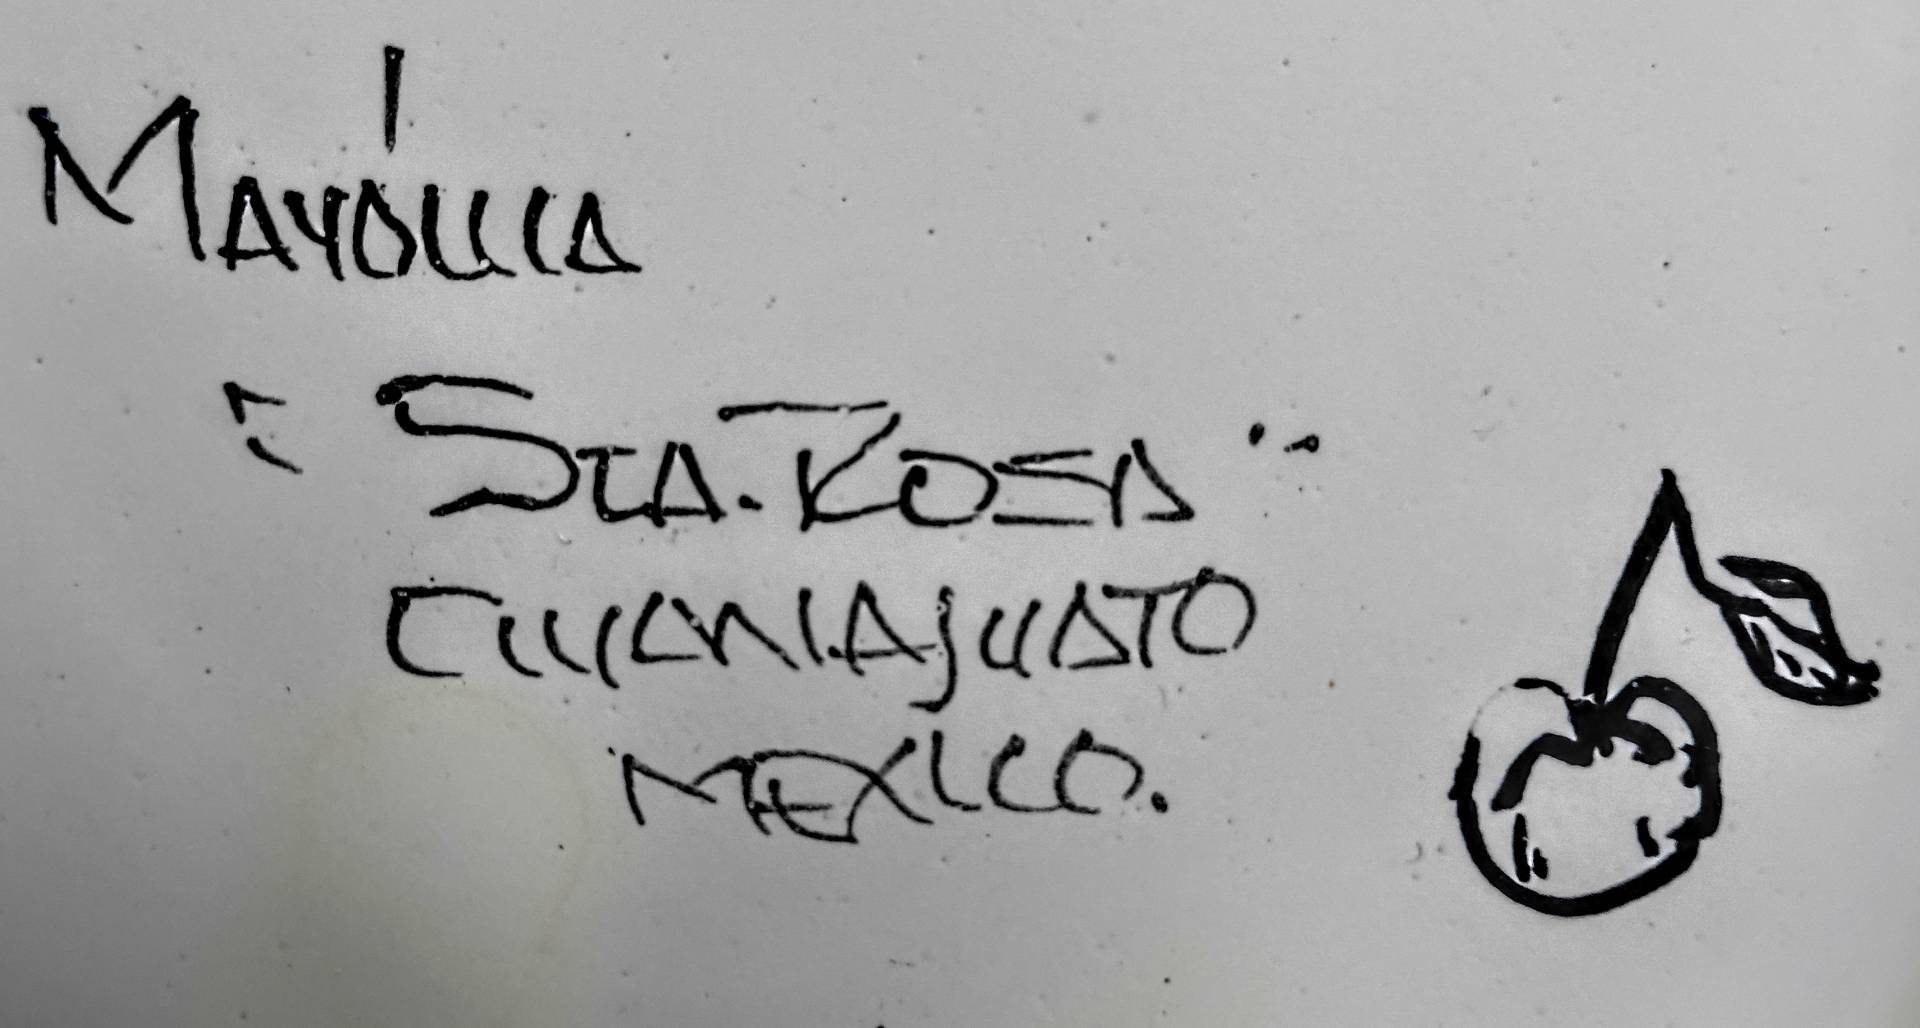 Mayólica
"Sta. Rosa"
Guanajuato
Mexico.